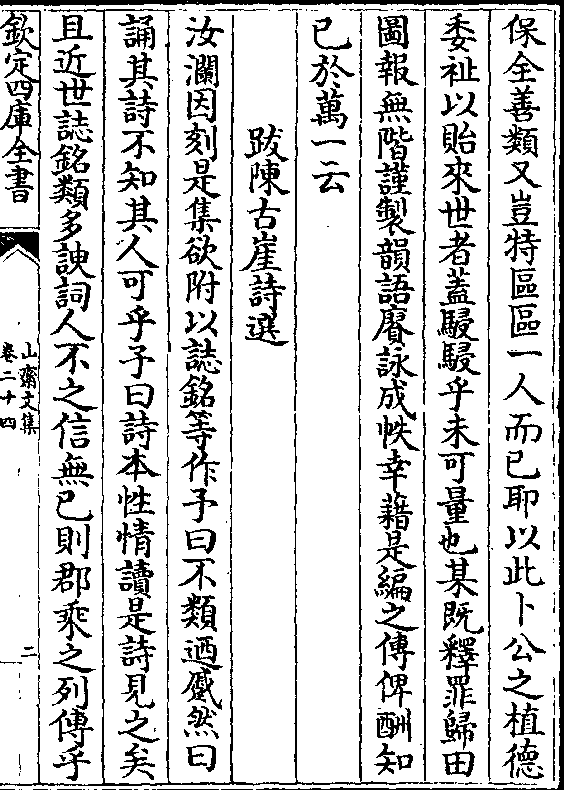 保全善類又豈特區區一人而已耶以此卜公之植德
委祉以貽來世者蓋駸駸乎未可量也某既釋罪歸田
圖報無階謹製韻語賡詠成帙幸藉是編之傳俾酬知
已於萬一云
跋陳古崖詩選
汝瀾因刻是集欲附以誌銘等作予曰不類迺慼然曰
誦其詩不知其人可乎予曰詩本性情讀是詩見之矣
且近世誌銘類多諛詞人不之信無已則郡乘之列傳乎
欽定四庫全書
山齋文集
卷二十四
二